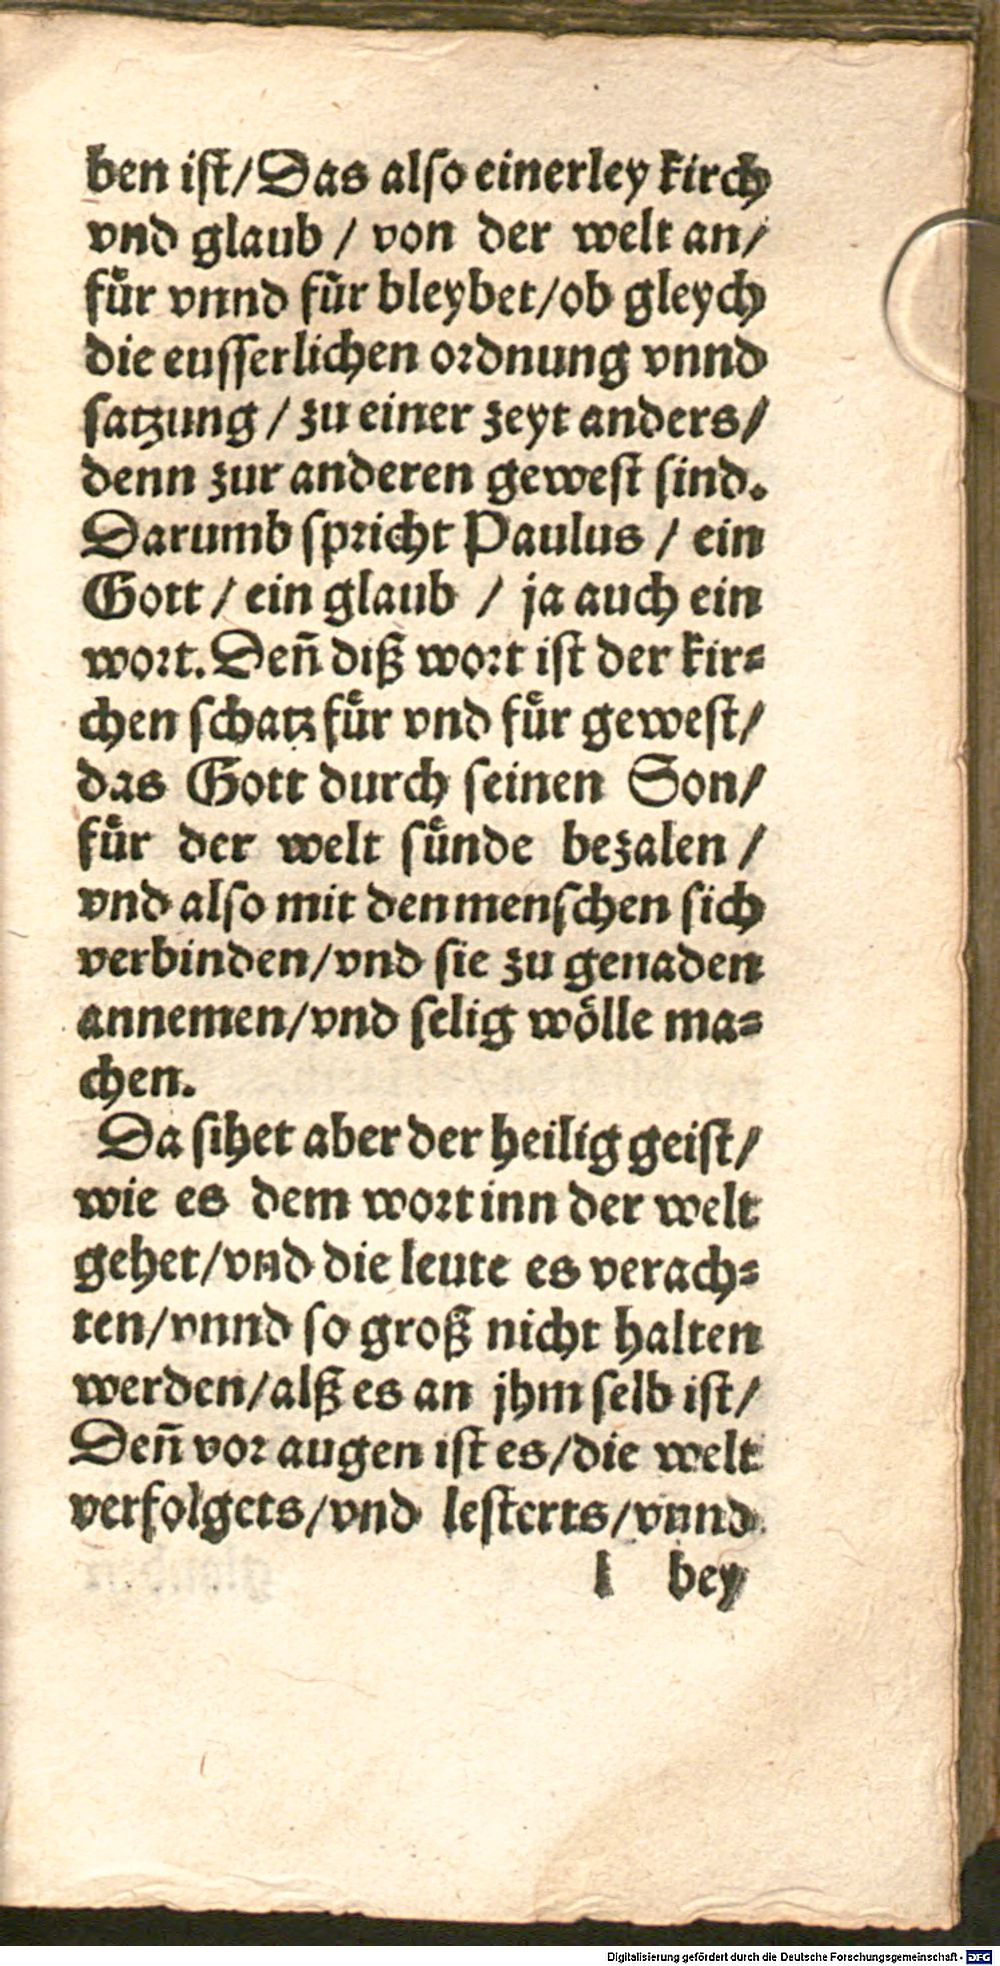 ben iſt/Das alſo einerley kirch
vnd glaub / von der welt an/
fuͤr vnnd fuͤr bleybet/ob gleych
die euſſerlichen ordnung vnnd
ſatzung / zu einer zeyt anders/
denn zur anderen geweſt ſind.
Darumb ſpricht Paulus / ein
Gott / ein glaub / ja auch ein
wort. Deñ diß wort iſt der kir⸗
chen ſchatz fuͤr vnd fuͤr geweſt/
das Gott durch ſeinen Son/
fuͤr der welt ſuͤnde bezalen /
vnd alſo mit den menſchen ſich
verbinden/vnd ſie zu genaden
annemen/vnd ſelig woͤlle ma⸗
chen.
Da ſihet aber der heilig geiſt/
wie es dem wort inn der welt
gehet/vnd die leute es verach⸗
ten/vnnd ſo groß nicht halten
werden/alß es an jhm ſelb iſt/
Deñ vor augen iſt es/die welt
verfolgets/vnd leſterts/vnnd
l bey
Digitalisierung gefördert durch die Deutsche Forschungsgemeinschaft - DFG